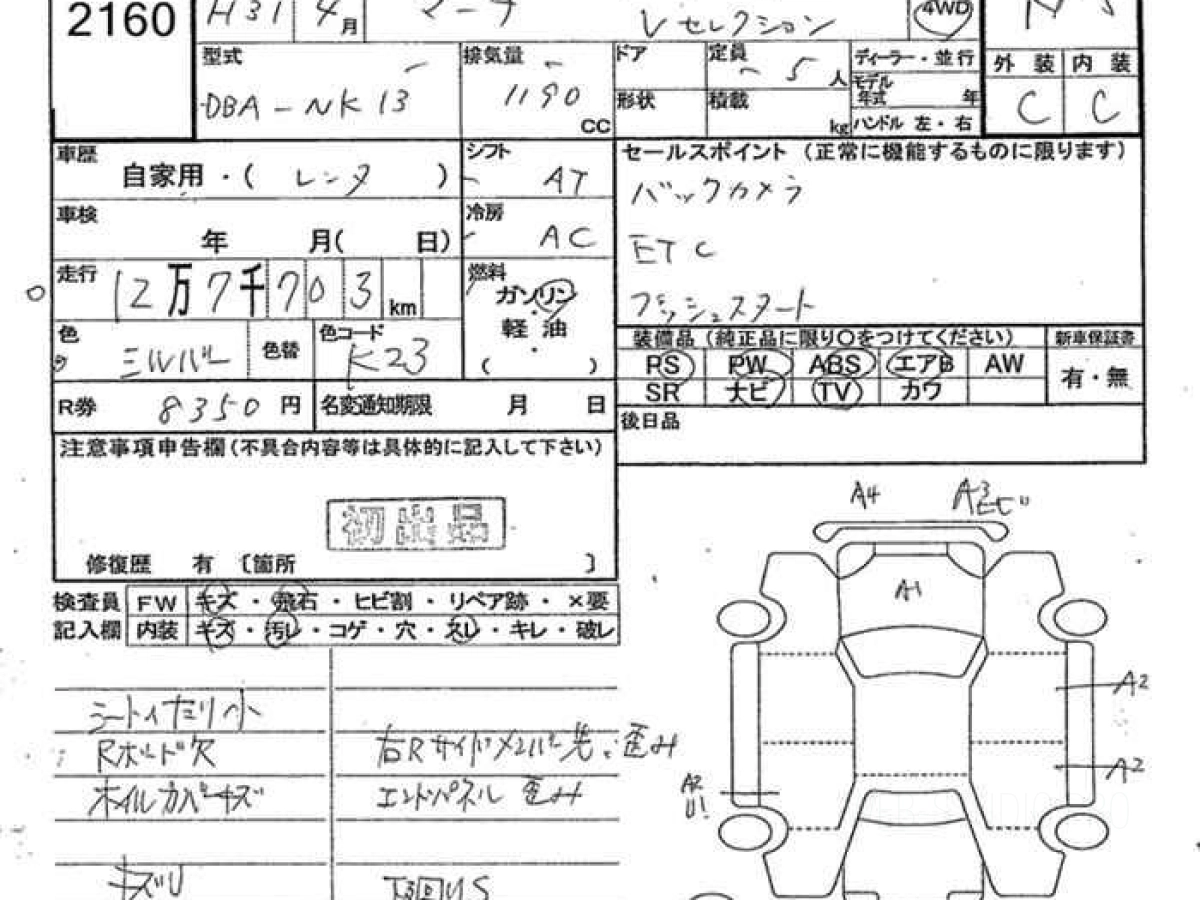 2160
H31 4月
マーチ
Vセレクション
4WD
型式
DBA-NK13
排気量
1190
CC
ドア
定員
5人
形状
積載
kg
ディーラー・並行
モデル
年式 年
ハンドル 左・右
外装 内装
C C
車歴
自家用・( レンタ )
シフト
AT
セールスポイント (正常に機能するものに限ります)
バックカメラ
ETC
プッシュスタート
車検
年 月( 日)
冷房
AC
走行
12万7千703km
燃料
ガソリン
軽油
・
( )
色
シルバー
色替
色コード
K23
装備品 (純正品に限り○をつけてください)
新車保証書
PS PW ABS エアB AW
SR ナビ TV カワ
有・無
R券 8350円
名変通知期限 月 日
後日品
注意事項申告欄(不具合内容等は具体的に記入して下さい)
初出品
修復歴 有 〔箇所 〕
検査員
記入欄
FW キズ・飛石・ヒビ割・リペア跡・×要
内装 キズ・汚レ・コゲ・穴・スレ・キレ・破レ
シートイタミ小
Rボード欠
ホイルカバーキズ
キズU
右Rサイドメンバー先、歪み
エンドパネル 歪み
下回りS
A4
A3
A1
A2
A2
A2
U1